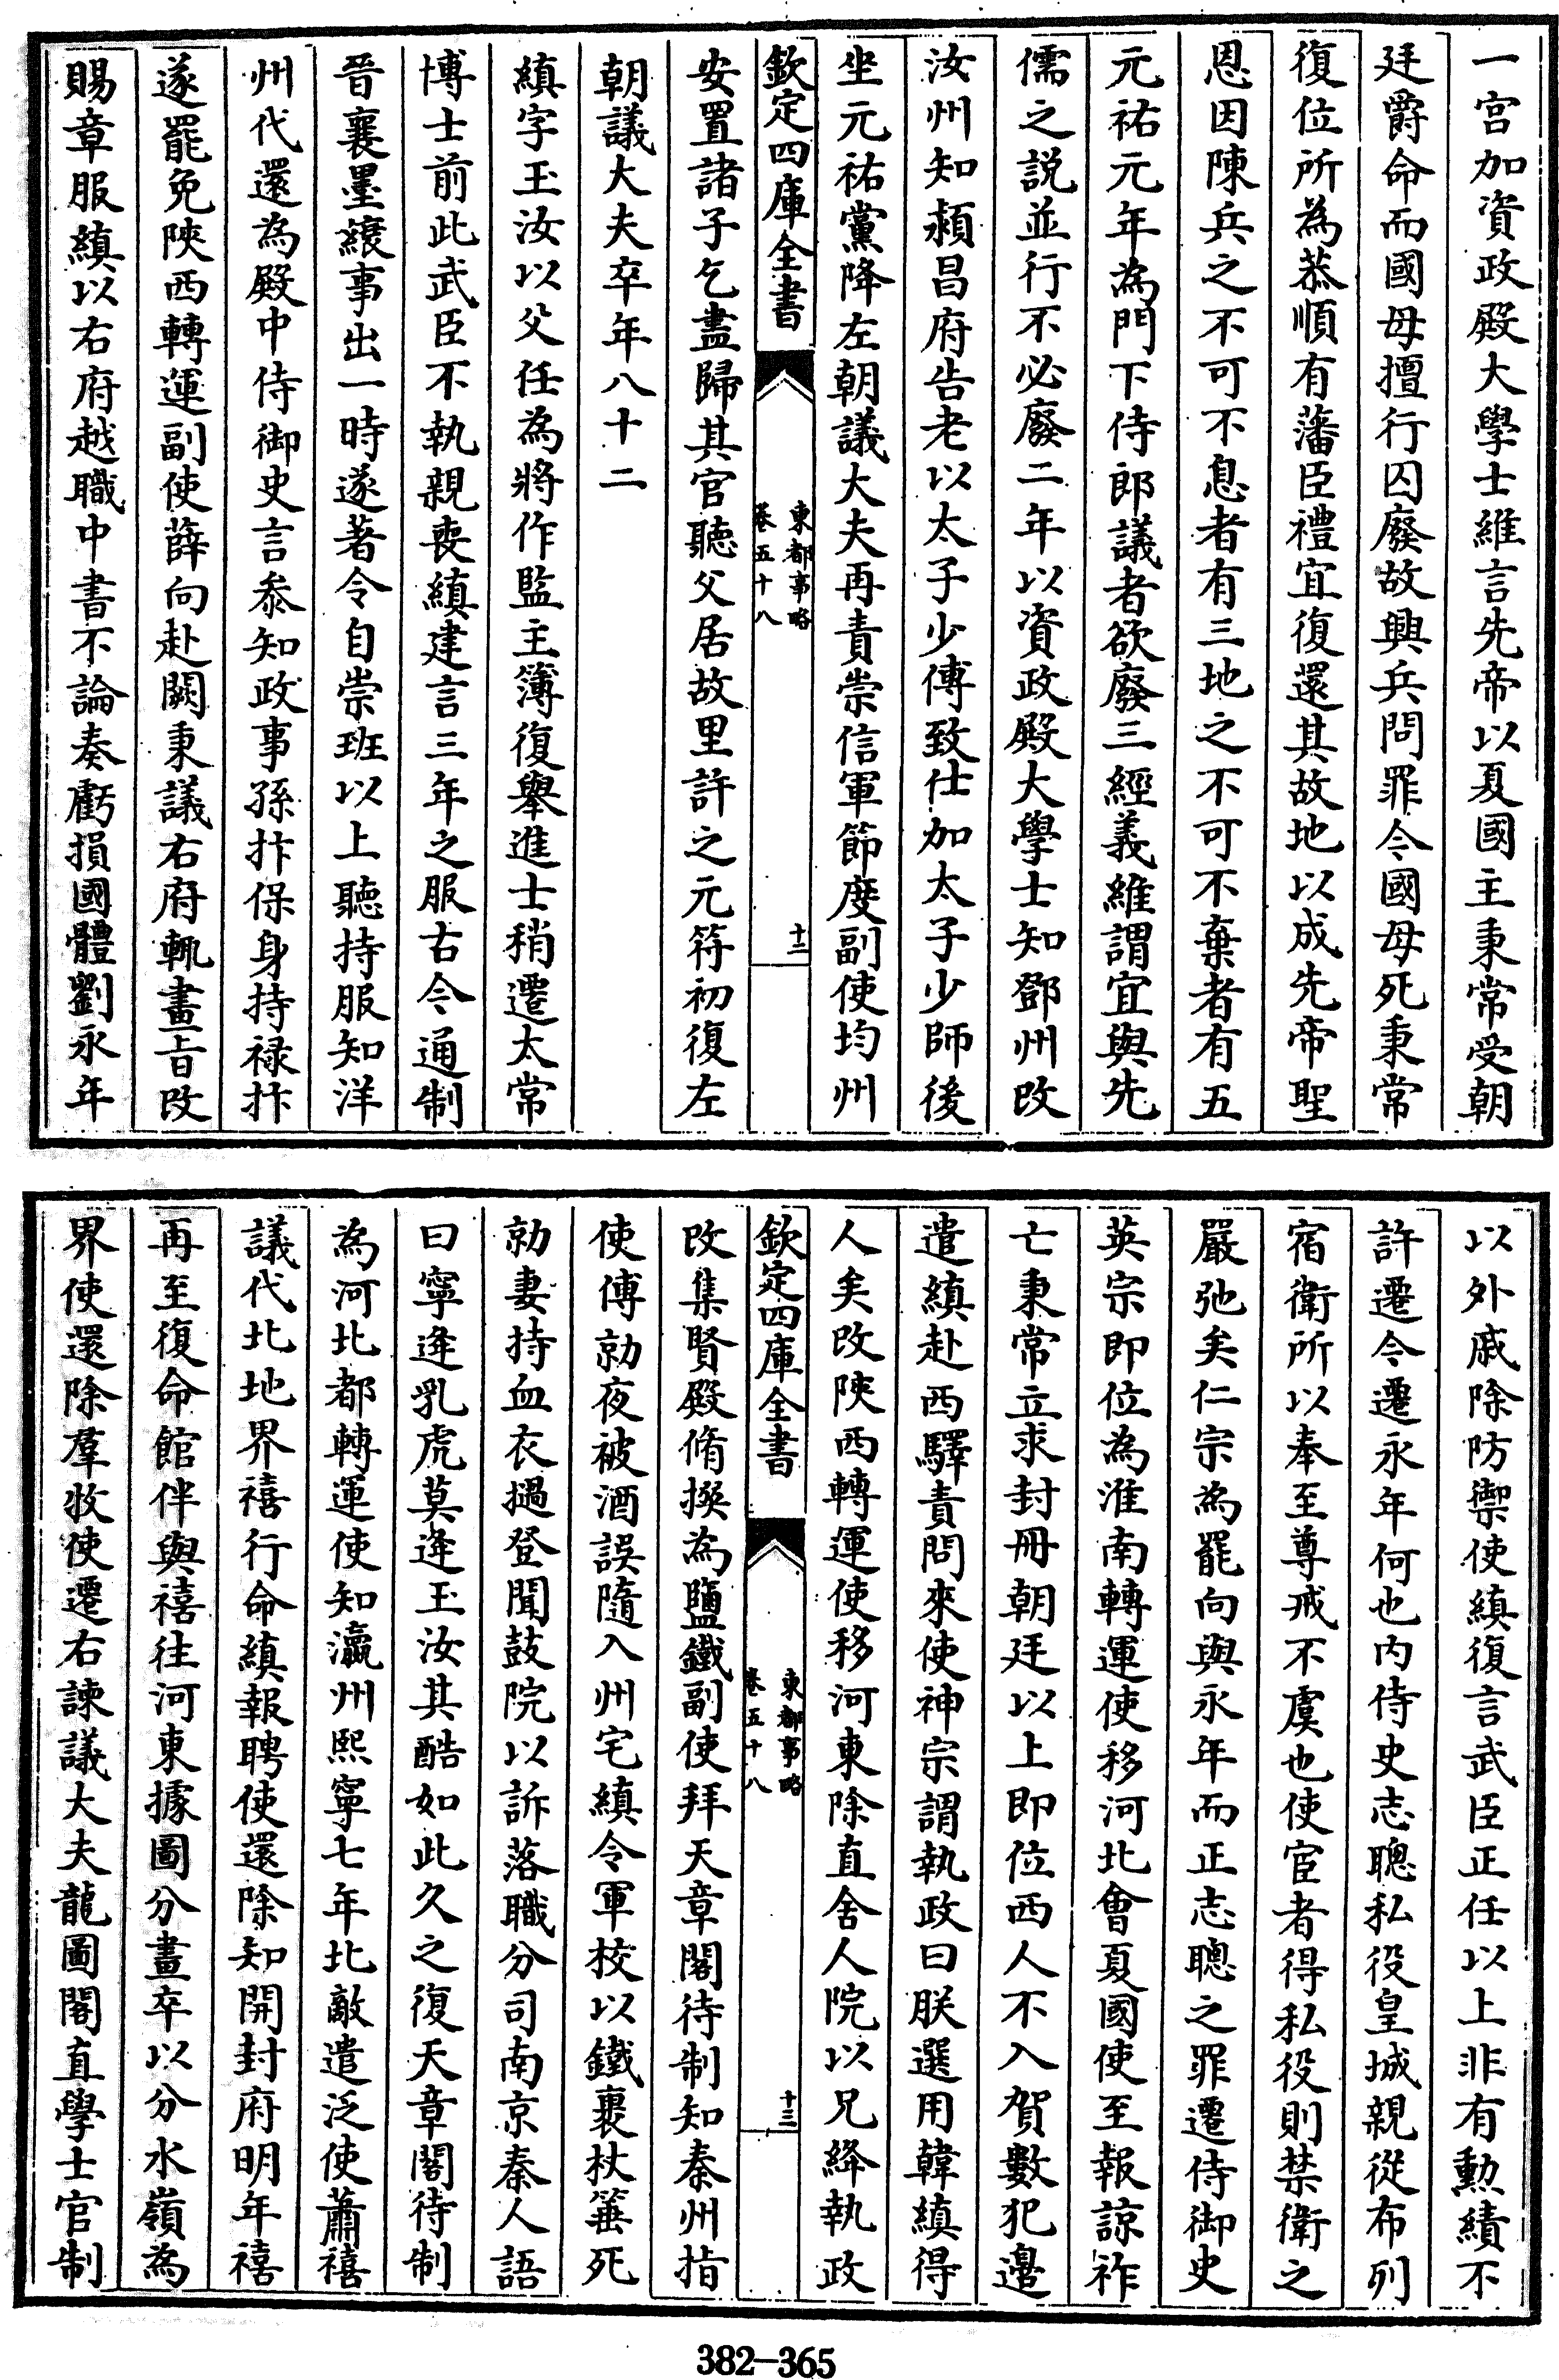 一宫加資政殿大學士維言先帝以夏國主秉常受朝
廷爵命而國母擅行囚廢故興兵問罪令國母死秉常
復位所為恭順有藩臣禮宜復還其故地以成先帝聖
恩因陳兵之不可不息者有三地之不可不棄者有五
元祐元年為門下侍郎議者欲廢三經義維謂宜與先
儒之説並行不必廢二年以資政殿大學士知鄧州改
汝州知潁昌府告老以太子少傅致仕加太子少師後
坐元祐黨降左朝議大夫再責崇信軍節度副使均州
欽定四庫全書
東都事略
卷五十八
十二
安置諸子乞盡歸其官聽父居故里許之元符初復左
朝議大夫卒年八十二
縝字玉汝以父任為將作監主簿復舉進士稍遷太常
博士前此武臣不執親喪縝建言三年之服古今通制
晉襄墨縗事出一時遂著令自崇班以上聽持服知洋
州代還為殿中侍御史言叅知政事孫抃保身持禄抃
遂罷免陜西轉運副使薛向赴闕秉議右府輒畫旨改
賜章服縝以右府越職中書不論奏虧損國體劉永年
以外戚除防禦使縝復言武臣正任以上非有勲績不
許遷今遷永年何也内侍史志聰私役皇城親從布列
宿衛所以奉至尊戒不虞也使宦者得私役則禁衛之
嚴弛矣仁宗為罷向與永年而正志聰之罪遷侍御史
英宗即位為淮南轉運使移河北會夏國使至報諒祚
亡秉常立求封冊朝廷以上即位西人不入賀數犯邊
遣縝赴西驛責問來使神宗謂執政曰朕選用韓縝得
人矣改陜西轉運使移河東除直舍人院以兄絳執政
欽定四庫全書
東都事略
卷五十八
十三
改集賢殿脩撰為鹽鐵副使拜天章閣待制知秦州指
使傅勍夜被酒誤隨入州宅縝令軍校以鐵裹杖箠死
勍妻持血衣撾登聞鼓院以訴落職分司南京秦人語
曰寧逢乳虎莫逢玉汝其酷如此久之復天章閣待制
為河北都轉運使知瀛州熙寧七年北敵遣泛使蕭禧
議代北地界禧行命縝報聘使還除知開封府明年禧
再至復命館伴與禧往河東據圖分畫卒以分水嶺為
界使還除羣牧使遷右諫議大夫龍圖閣直學士官制
382-365